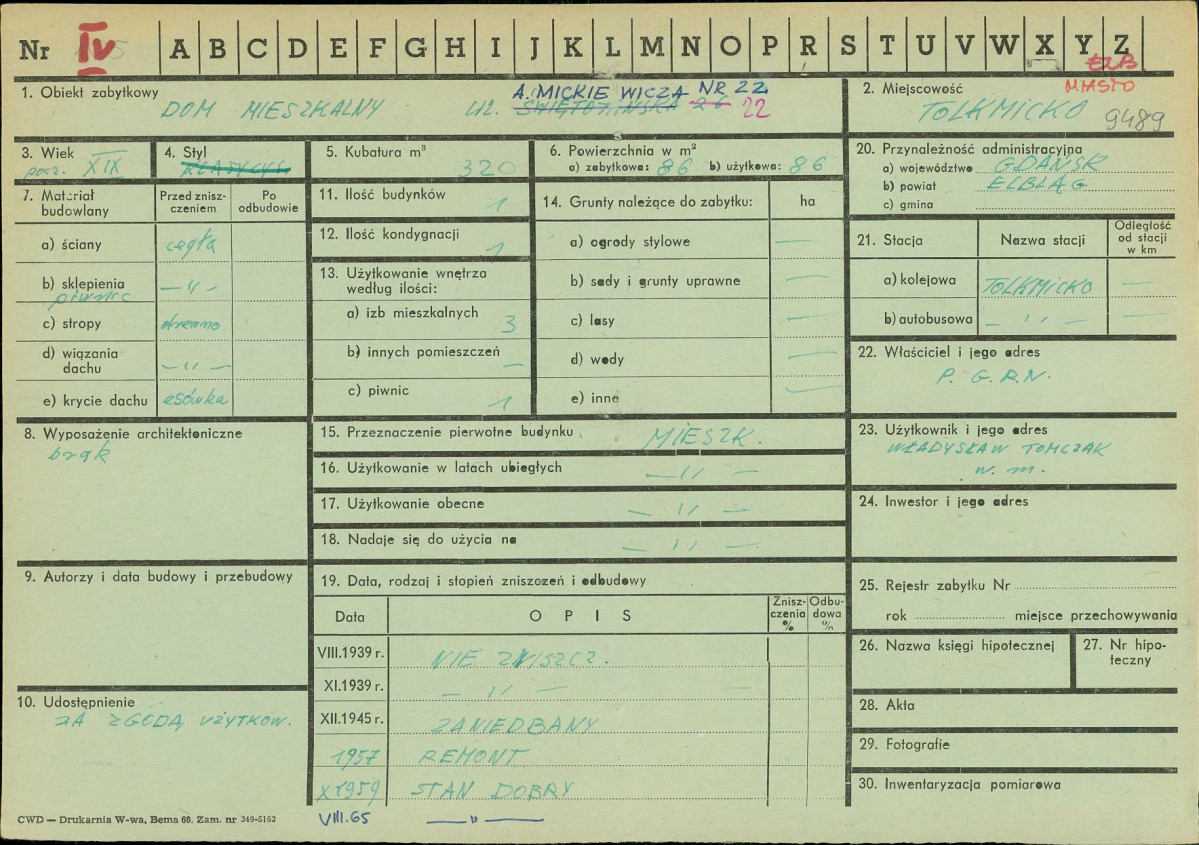 Nr IV A B C D E F G H I J K L M N O P R S T U V W X Y Z
ELB
MIASTO
1. Obiekt zabytkowy
A. MICKIEWICZA NR 22
DOM MIESZKALNY UL. ŚWIĘTOJAŃSKA 26 22
2. Miejscowość
TOLKMICKO 9489
3. Wiek
pocz. XIX
4. Styl
KLASYCYS.
5. Kubatura m³
320
6. Powierzchnia w m²
a) zabytkowa: 86 b) użytkowa: 86
20. Przynależność administracyjna
a) województwo GDAŃSK
b) powiat ELBLĄG
c) gmina
7. Materiał budowlany
Przed zniszczeniem
Po odbudowie
a) ściany cegła
b) sklepienia — „ —
piwnic
c) stropy drewno
d) wiązania dachu — „ —
e) krycie dachu esówka
11. Ilość budynków 1
12. Ilość kondygnacji 1
13. Użytkowanie wnętrza
według ilości:
a) izb mieszkalnych 3
b) innych pomieszczeń —
c) piwnic 1
14. Grunty należące do zabytku: ha
a) ogrody stylowe —
b) sady i grunty uprawne —
c) lasy —
d) wody —
e) inne —
21. Stacja Nazwa stacji Odległość od stacji w km
a) kolejowa TOLKMICKO —
b) autobusowa — „ — —
22. Właściciel i jego adres
P. G.R.N.
8. Wyposażenie architektoniczne
brak
15. Przeznaczenie pierwotne budynku MIESZK.
16. Użytkowanie w latach ubiegłych — „ —
17. Użytkowanie obecne — „ —
18. Nadaje się do użycia na — „ —
23. Użytkownik i jego adres
WŁADYSŁAW TOMCZAK
w. m.
24. Inwestor i jego adres
9. Autorzy i data budowy i przebudowy
19. Data, rodzaj i stopień zniszczeń i odbudowy
Data OPIS Zniszczenia % Odbudowa %
VIII.1939 r. NIE ZNISZCZ.
XI.1939 r. — „ —
XII.1945 r. ZANIEDBANY
1957 REMONT
X 1959 STAN DOBRY
VIII.65 — „ —
25. Rejestr zabytku Nr
rok miejsce przechowywania
26. Nazwa księgi hipotecznej
27. Nr hipoteczny
10. Udostępnienie
ZA ZGODĄ UŻYTKOW.
28. Akta
29. Fotografie
30. Inwentaryzacja pomiarowa
CWD — Drukarnia W-wa, Bema 60. Zam. nr 349-5162